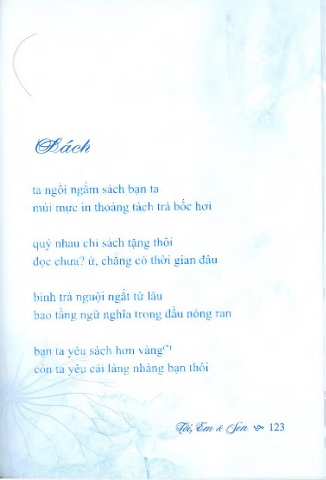 Sách
ta ngồi ngắm sách bạn ta
mùi mực in thoảng tách trà bốc hơi
quý nhau chỉ sách tặng thôi
đọc chưa? ừ, chẳng có thời gian đâu
bình trà nguội ngắt từ lâu
bao tầng ngữ nghĩa trong đầu nóng ran
bạn ta yêu sách hơn vàng(*)
còn ta yêu cái làng nhàng bạn thôi
Tôi, Em & Sen 123